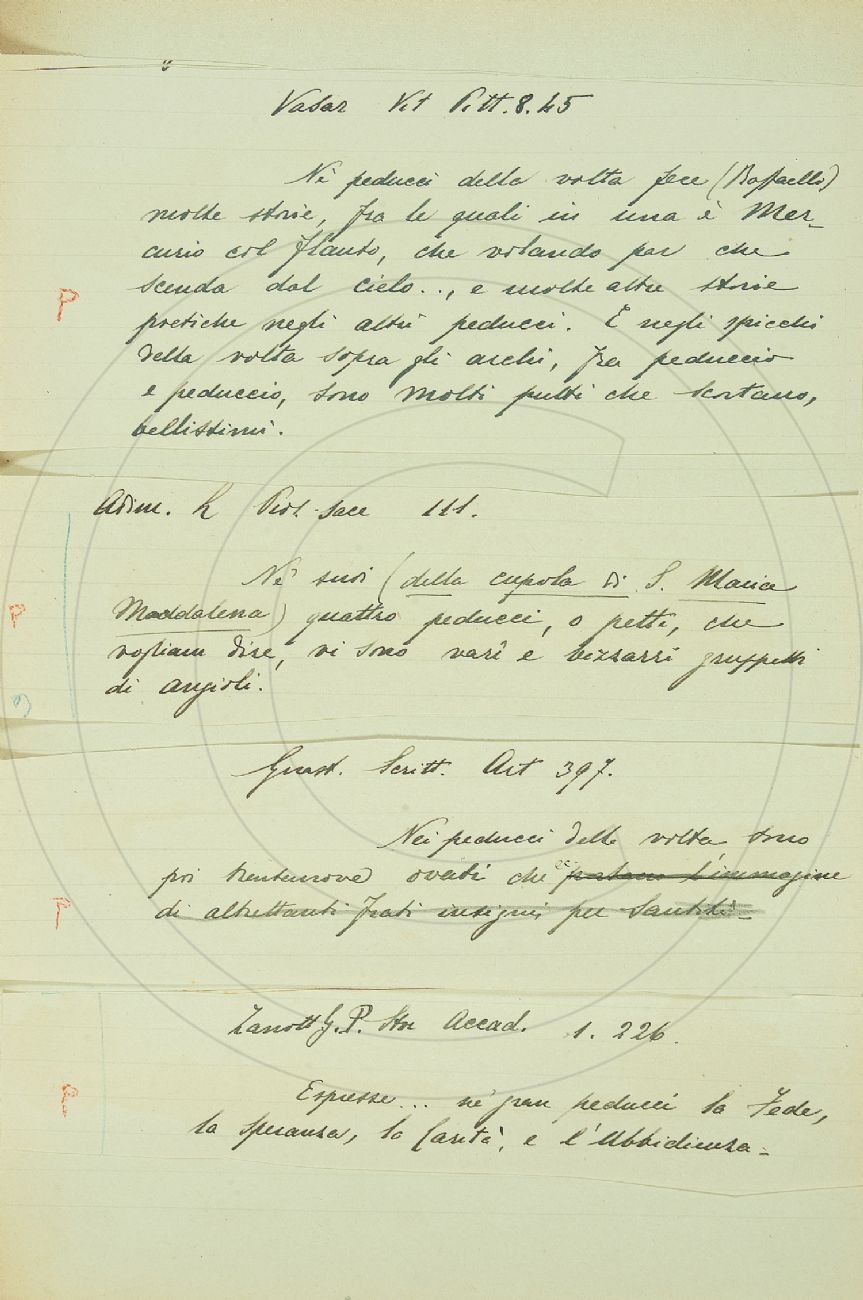 Vasar Vit Pitt. 8. 45
Ne' peducci della volta fece (Raffaello)
molte storie, fra le quali in una è Mer-
curio col flauto, che volando par che
scenda dal cielo.., e molte altre storie
poetiche negli altri peducci. E negli spicchi
della volta sopra gli archi, fra peduccio
e peduccio, sono molti putti che scortano,
bellissimi.
P
Adim. R Piol. Sacc 111.
Ne' suoi (della cupola di S. Maria
Maddalena) quattro peducci, o petti, che
vogliam dire, vi sono varî e bizzarri gruppetti
di angioli.
P
Guast. Scritt. Art 397.
Nei peducci delle volta sono
poi trentanove ovati che ec. portano l'immagine
di altrettanti frati insigni per Santità-
P
Zanott G. P. Stor Accad. 1. 226.
Espresse... ne' gran peducci la Fede,
la Speranza, la Carità, e l'Ubbidienza-
P